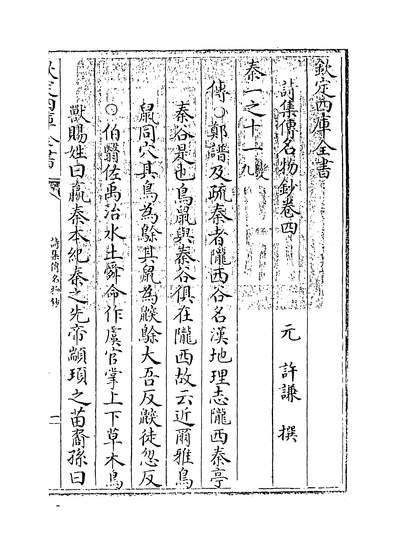 欽定四庫全書
詩集傳名物鈔卷四
元 許謙 撰
秦一之十一 九變
傳○鄭譜及疏秦者隴西谷名漢地理志隴西秦亭
秦谷是也鳥鼠與秦谷俱在隴西故云近爾雅鳥
鼠同穴其鳥為鵌其鼠為鼵鵌大吾反鼵徒忽反
○伯翳佐禹治水土舜命作虞官掌上下草木鳥
獸賜姓曰嬴秦本紀秦之先帝顓頊之苗裔孫曰
欽定四庫全書
詩集傳名物鈔
一